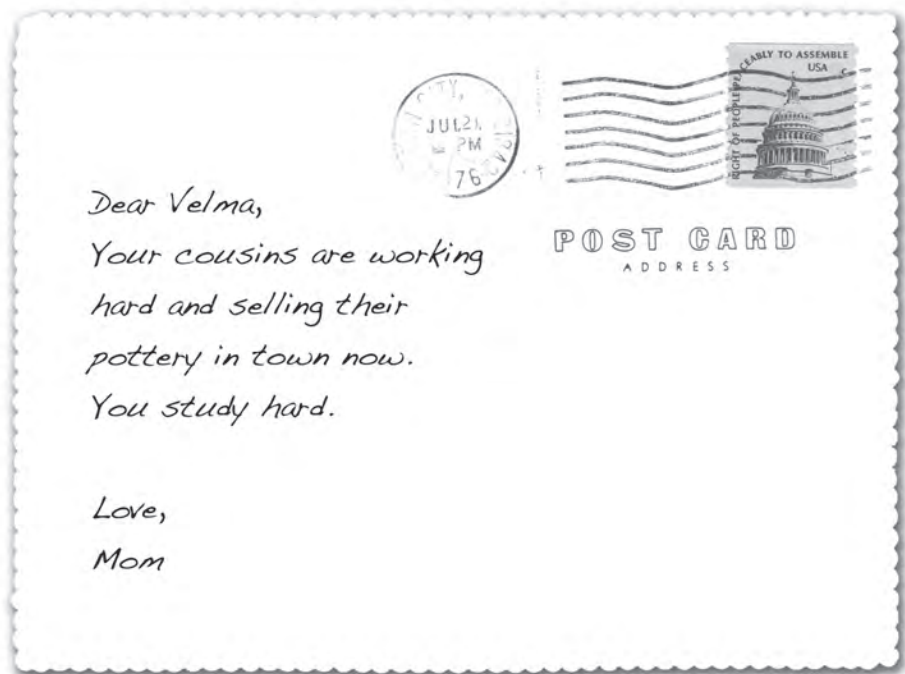 CITY,
JUL 21,
PM
76
RIGHT OF PEOPLE PEACEABLY TO ASSEMBLE
USA
c
Dear Velma,
Your cousins are working
hard and selling their
pottery in town now.
You study hard.
Love,
Mom
POST CARD
ADDRESS